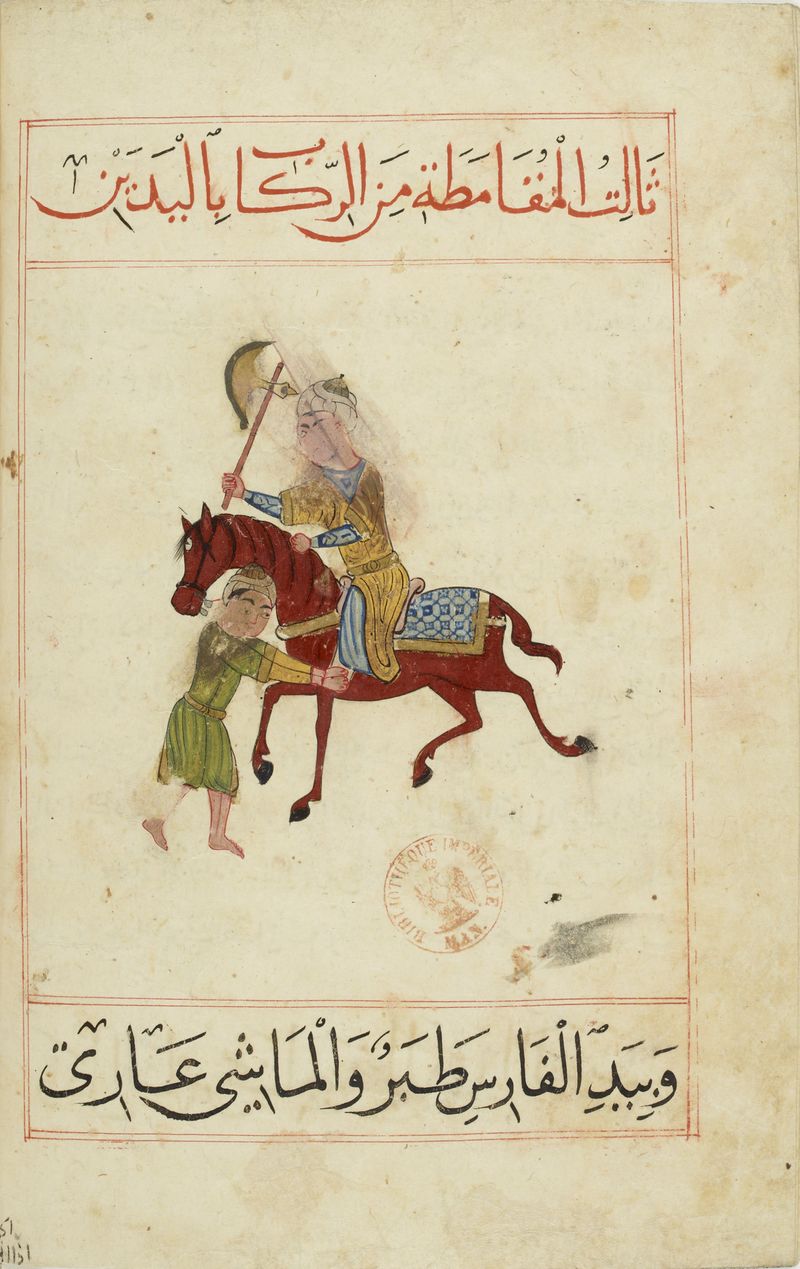 ثَالِثُ الْمُقَامَطَةِ مِنَ الرِّكَابِ بِالْيَدَيْنِ
BIBLIOTHÈQUE IMPÉRIALE
وَبِيَدِ الْفَارِسِ طَبَرٌ وَالْمَاشِي عَارِي